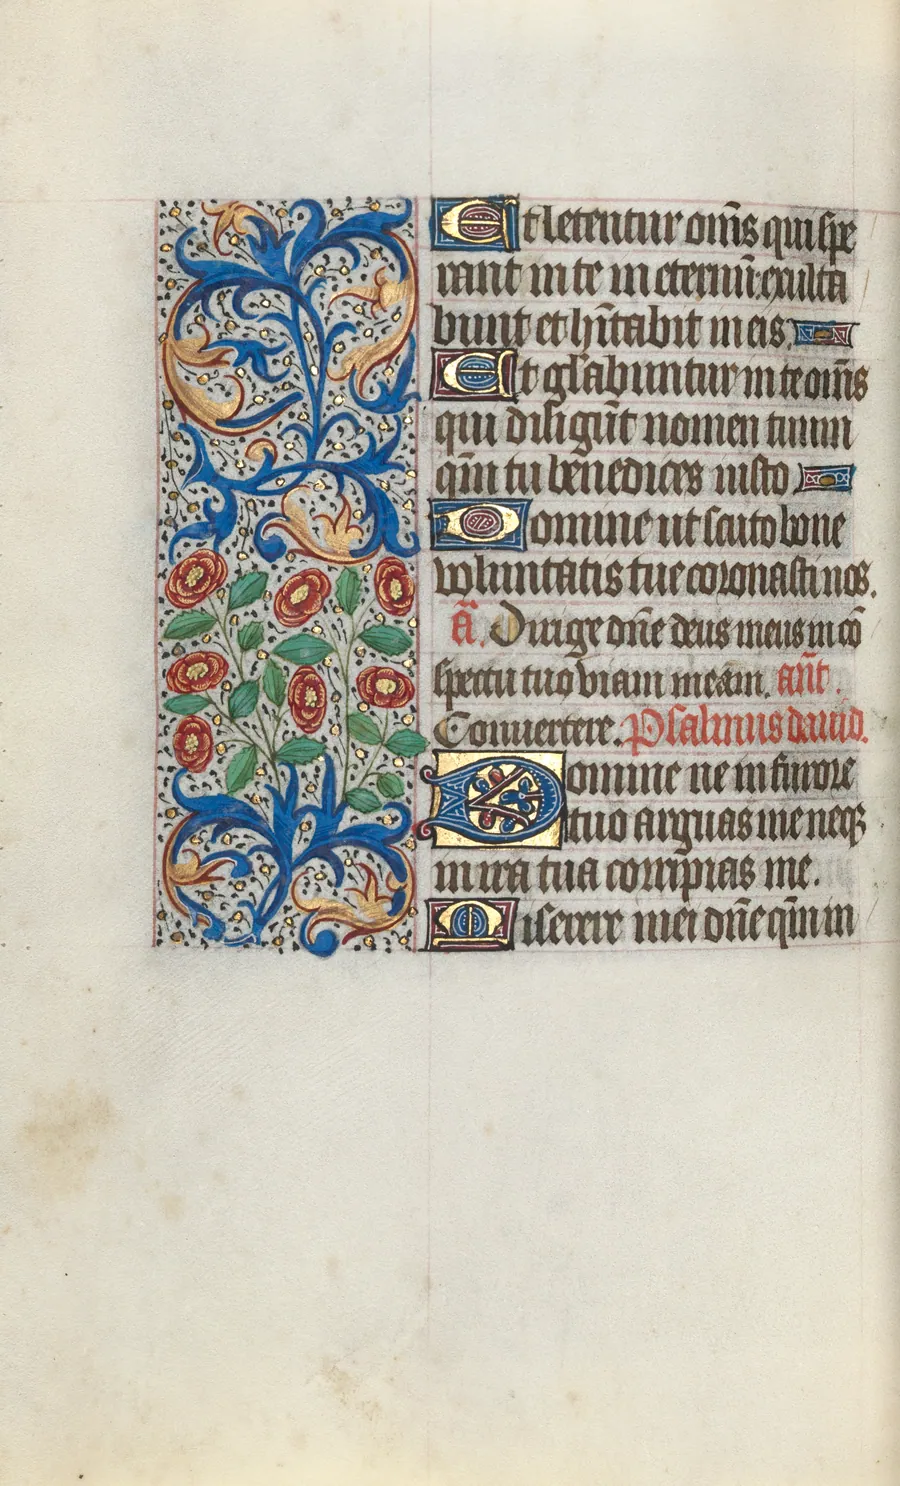 Et letentur om̄s qui spe
rant in te in eternū: exulta
bunt et hītabit in eis.
Et gl̄abuntur in te om̄s
qui diligūt nomen tuum
qm̄ tu benedices iusto
Domine ut scuto bone
voluntatis tue coronasti nos.
ā. Dirige dn̄e deus meus in cō
spectu tuo viam meam. ant̄.
Convertere. Psalmus david.
Domine ne in furore
tuo arguas me neqꝫ
in ira tua corripias me.
Miserere mei dn̄e qm̄ in